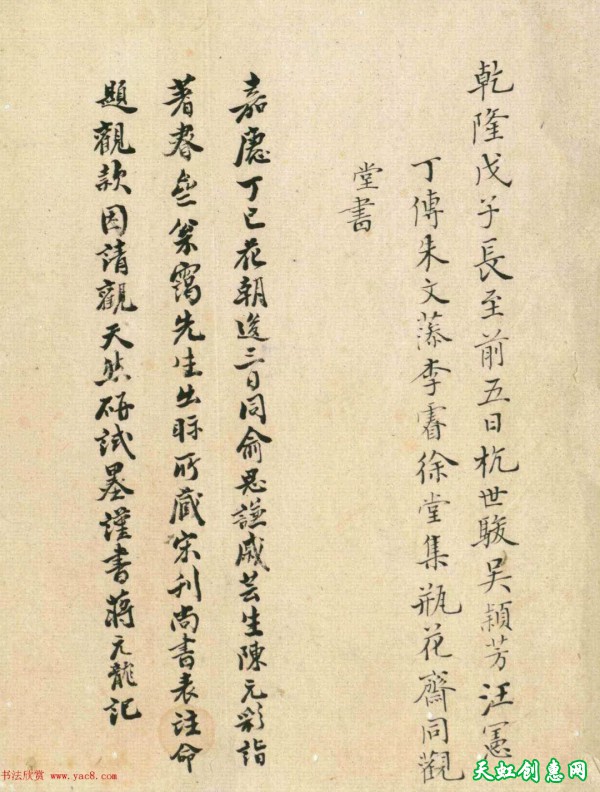 乾隆戊子長至前五日杭世駿吳穎芳汪憲
丁傳朱文藻李睿徐堂集瓶花齋同觀
堂書
嘉慶丁巳花朝後三日同俞思謙戚芸生陳元彩詣
著春齋霭先生出眎所藏宋刊尚書表注命
題觀款因請觀天然研試墨謹書蔣元龍記
书法欣赏 www.yac8.com
天虹创意网